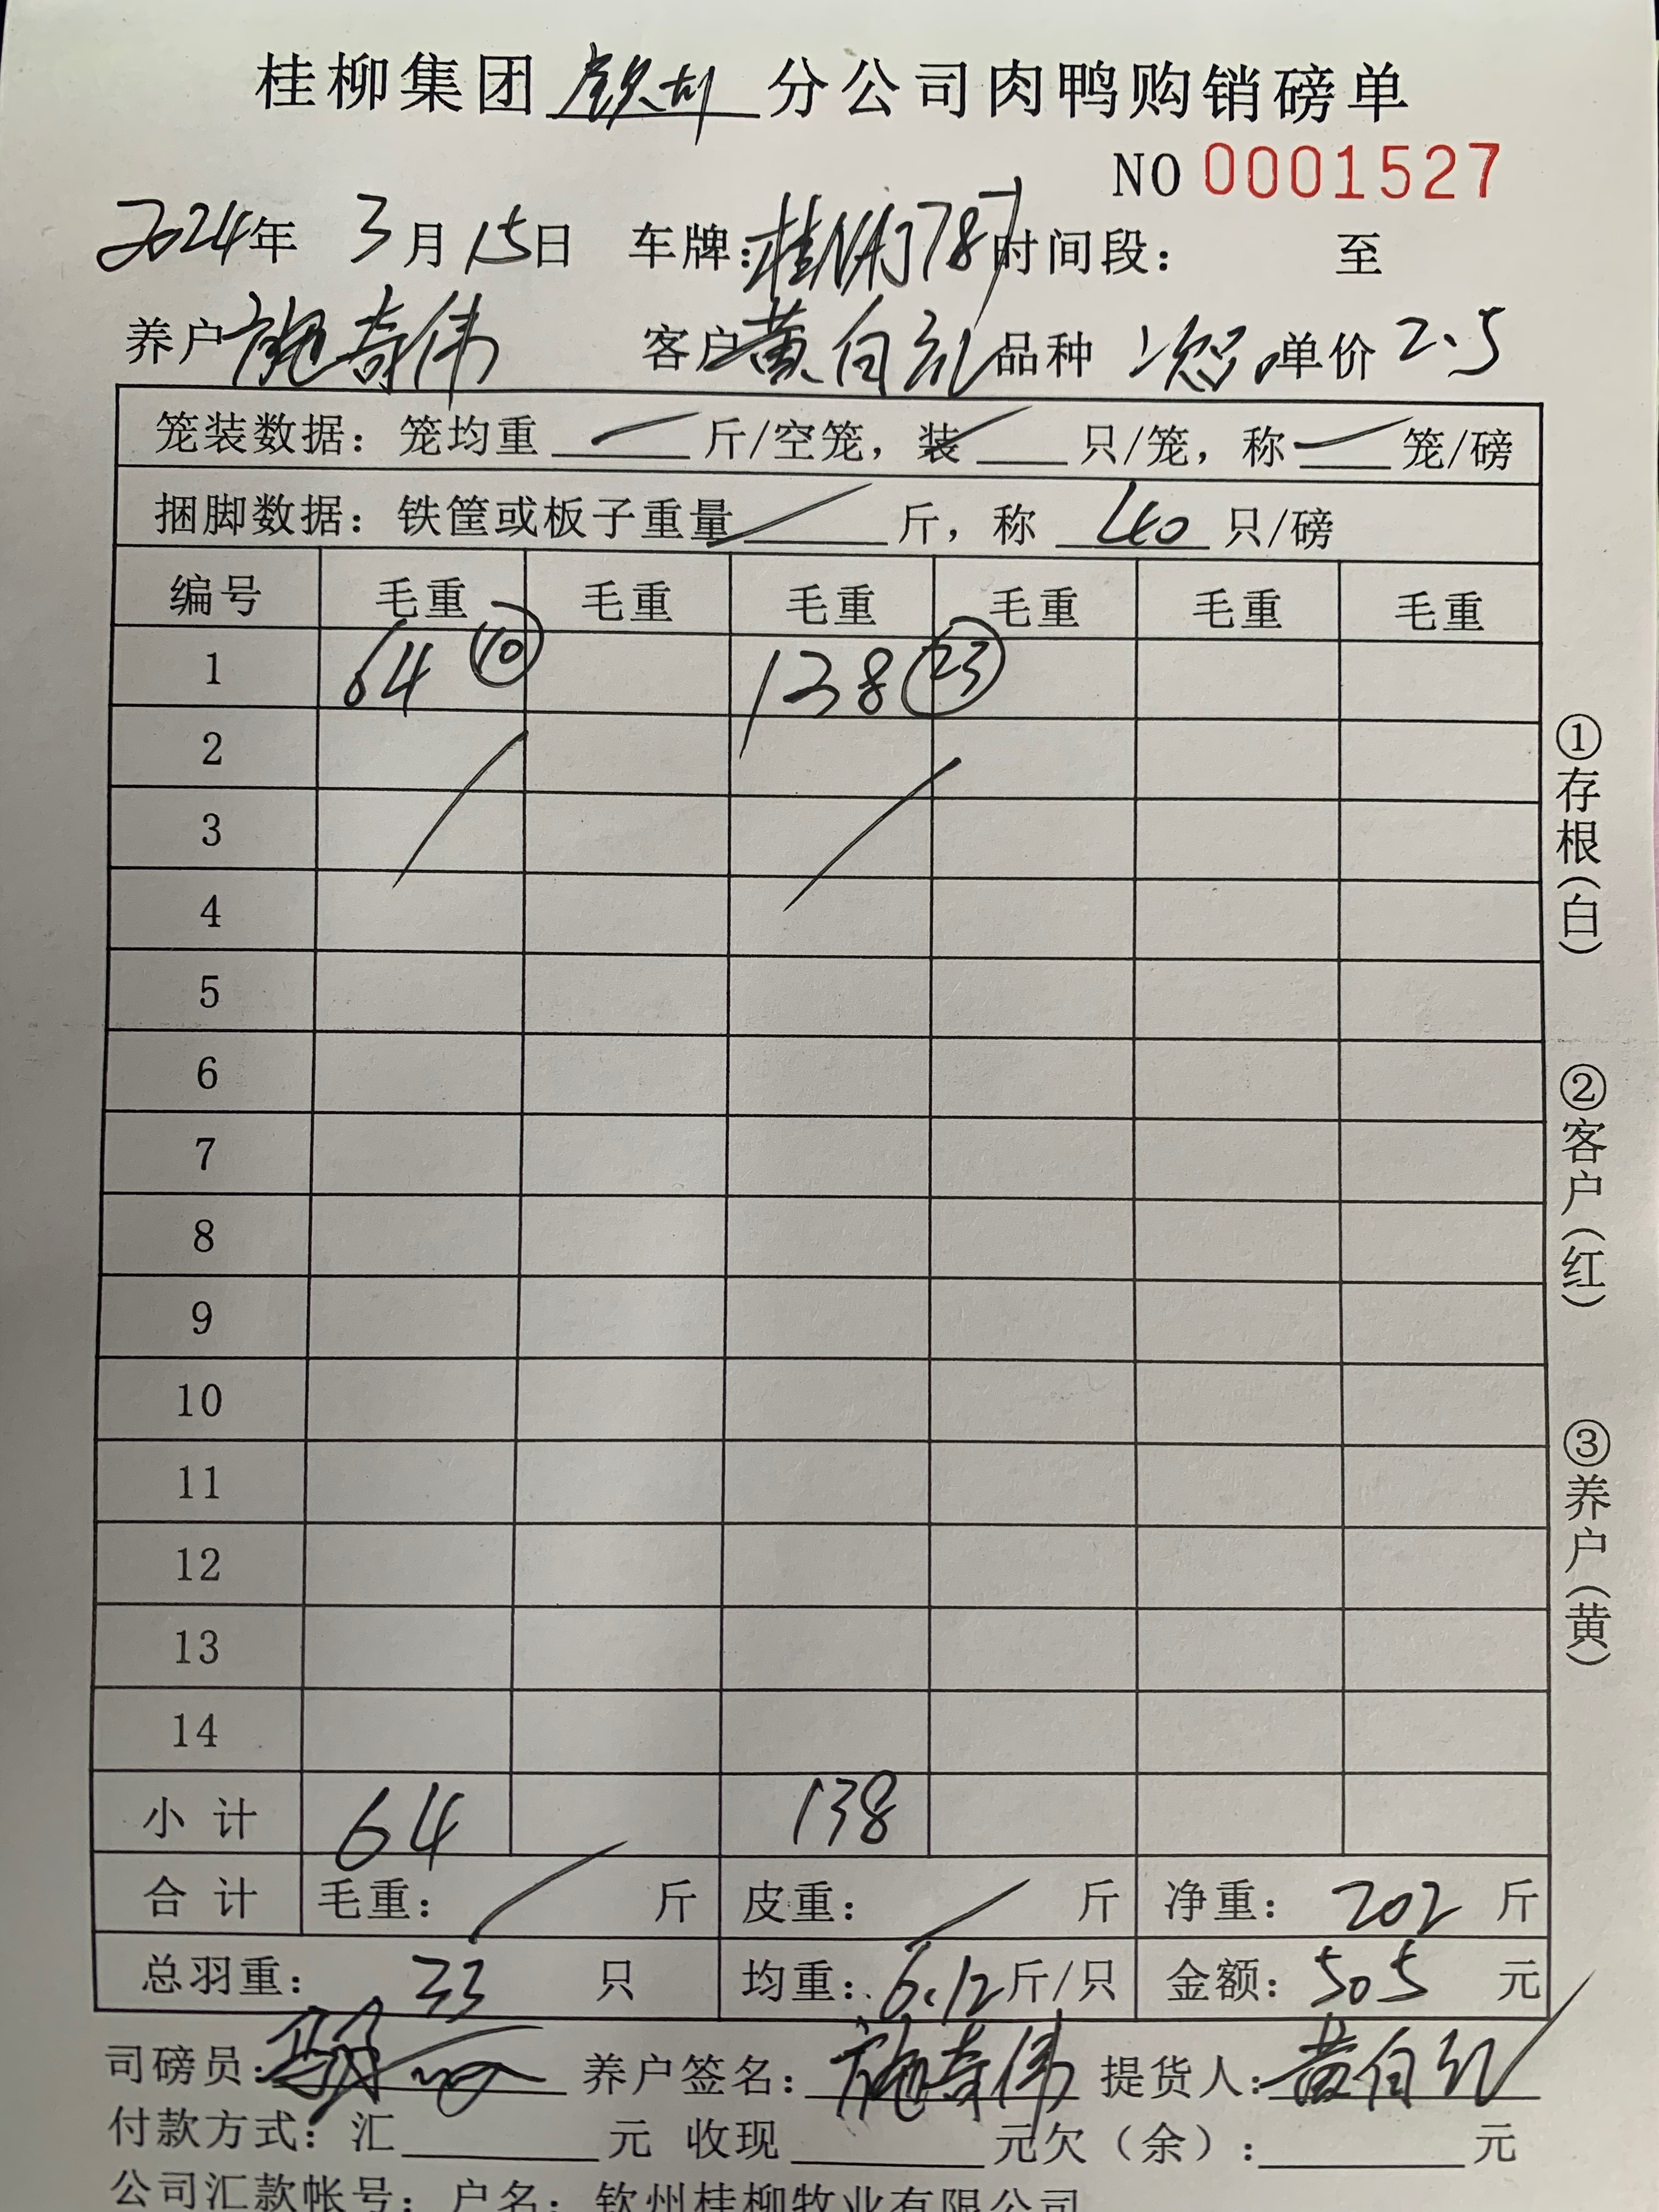 桂柳集团钦州分公司肉鸭购销磅单
NO 0001527
2024年 3月15日 车牌: 时间段： 至
养户施奇伟 客户黄白 品种 单价2.5
笼装数据：笼均重 斤/空笼，装 只/笼，称 笼/磅
捆脚数据：铁筐或板子重量 斤，称 40 只/磅
编号 毛重 毛重 毛重 毛重 毛重 毛重
1 64 ⑩ 138 ㉓
2
3
4
5
6
7
8
9
10
11
12
13
14
小 计 64 138
合 计 毛重： 斤 皮重： 斤 净重：202斤
总羽重：33 只 均重：6.12斤/只 金额：505 元
司磅员： 养户签名：施奇伟 提货人：黄白
付款方式：汇 元 收现 元欠（余）： 元
公司汇款帐号：户名：钦州桂柳牧业有限公司
①存根（白）
②客户（红）
③养户（黄）